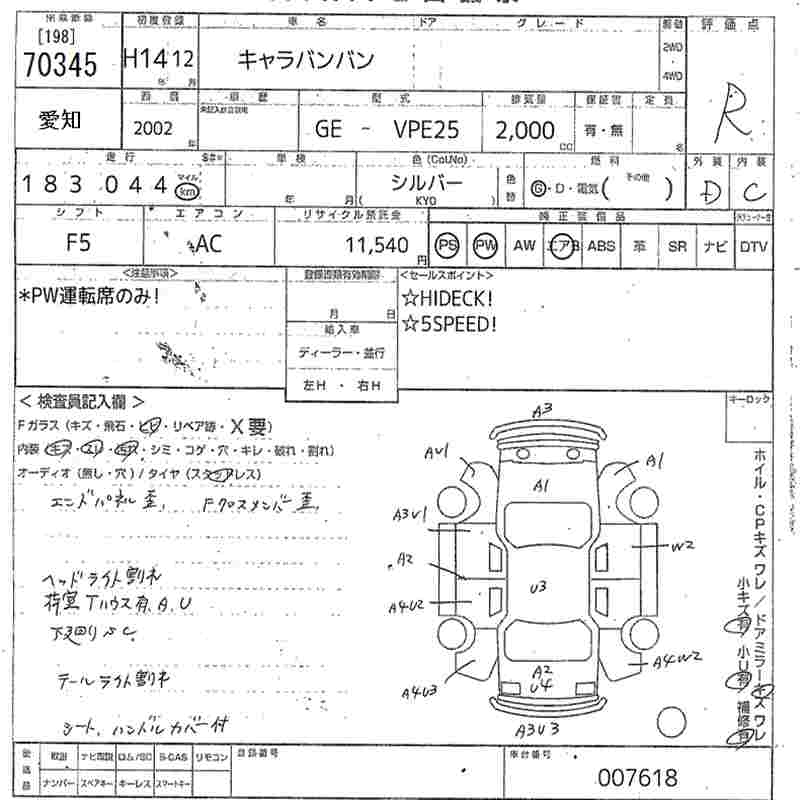 初度登録 車名 ドア グレード 駆動 評価点
[198]
70345 H14 12 キャラバンバン 2WD ・ 4WD R
年 月
愛知 車歴 型式 排気量 保証書 定員
2002 年 GE - VPE25 2,000 CC 有・無 名
走行 車検 色(Col,No) 燃料 外装 内装
183044 マイル km 年 月 シルバー 色替 G・D・電気( その他 ) D C
( KYO )
シフト エアコン リサイクル預託金 純正装備品
F5 AC 11,540 円 PS PW AW エアB ABS 革 SR ナビ DTV
<注意事項> <セールスポイント>
*PW運転席のみ! ☆HIDECK!
月 日 ☆5SPEED!
輸入車
ディーラー・並行
左H ・ 右H
<検査員記入欄> キーロック
Fガラス(キズ・飛石・ヒビ・リペア跡・X要)
内装(キズ・スレ・ヨゴレ・シミ・コゲ・穴・キレ・破れ・割れ)
オーディオ(無し・穴)/タイヤ(スタッドレス)
エンドパネル歪, Fクロスメンバー歪,
ヘッドライト割れ
荷室Tハウス有,A,U
下廻りSC,
テールライト割れ
シート,ハンドルカバー付
A3
AU1 A1
A1
A3U1
A2 W2
U3
A4U2
A4U3 A2 A4W2
U4
A3U3
ホイル・CPキズワレ/ドアミラーキズワレ
小キズ有 小U有 補修有
取説 ナビ取説 ロム/SC B-CAS リモコン 登録番号 車台番号
ナンバー スペアキー キーレス スマートキー 007618